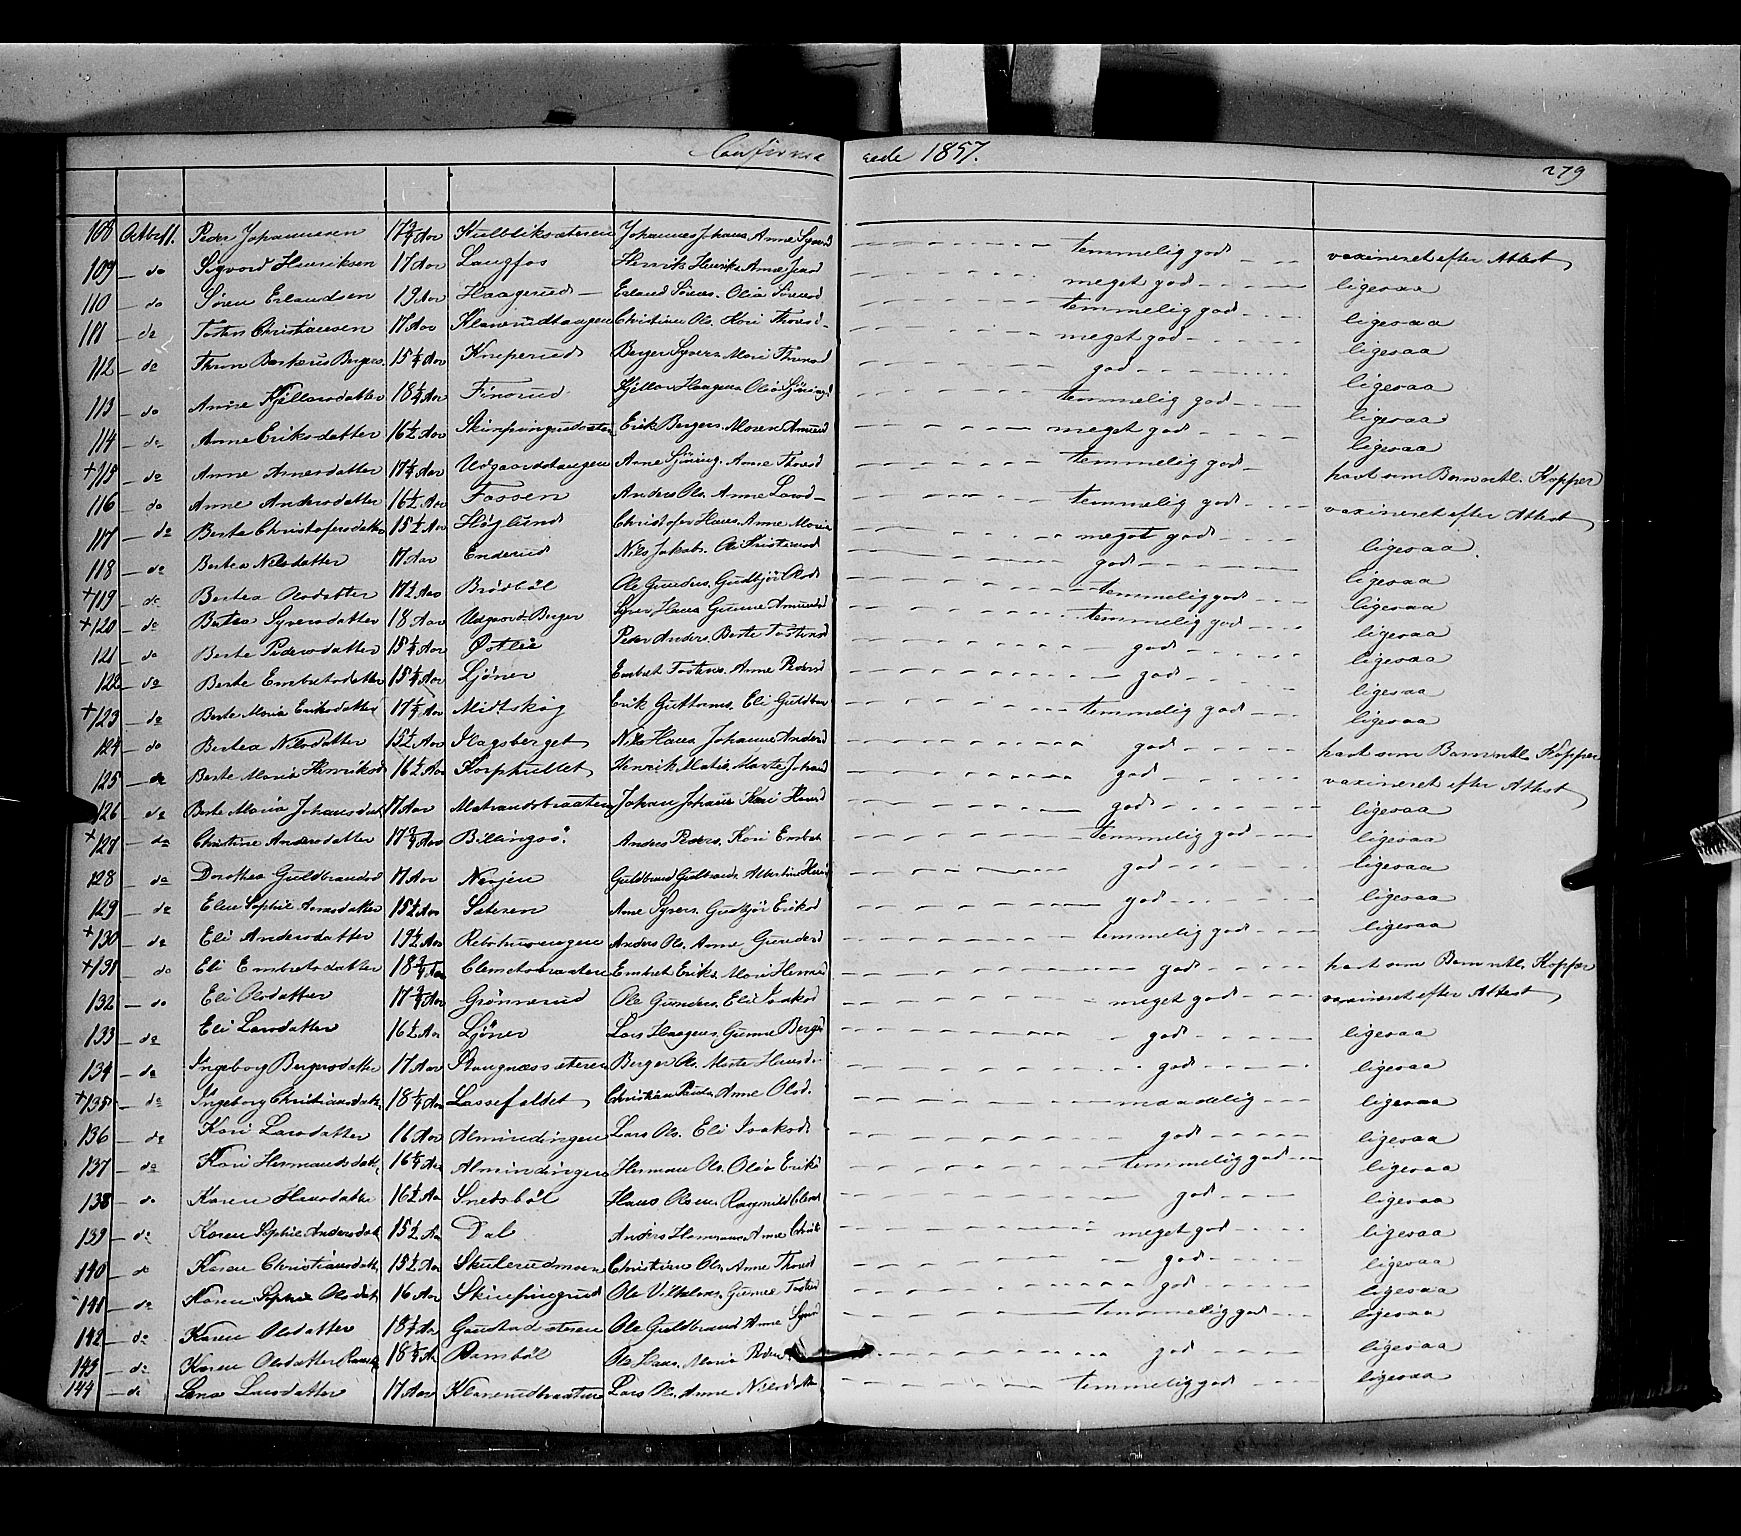 Confirmerede 1857.
279
108 Octbr 11. Peder Johannesen 17 3/4 Aar Kulbliksæteren Johannes Johans. Anne Syversd temmelig god vaxineret efter Attest
109 do Sigvord Henriksen 17 Aar Langfos Henrik Henriks. Anne meget god ligesaa
110 do Søren Erlandsen 19 Aar Haagerud Erland Sørens. Olia Sørensd temmelig god ligesaa
111 do Tosten Christiansen 17 Aar Klanerudtangen Christian Ols. Kari Thoresd meget god ligesaa
112 do Bergers. 15 1/4 Aar Kneperud Berger Syvers. Mari god ligesaa
113 do Anne Kjellorsdatter 18 1/4 Aar Finsrud Kjellor Haagens. Olia temmelig god ligesaa
114 do Anne Eriksdatter 16 1/2 Aar Erik Bergers. Maren Amundsd meget god ligesaa
+115 do Anne Arnesdatter 17 1/4 Aar Udgaardstangen Arne Anne Thoresd temmelig god havt som Barn ntl. Kopper
116 do Anne Andersdatter 16 1/2 Aar Fossen Anders Ols. Anne Larsd temmelig god vaxineret efter Attest
117 do Berte Christofersdatter 15 1/2 Aar Høglund Christofer Hans. Anne Maria meget god ligesaa.
118 do Bertea Nilsdatter 17 Aar Enderud Nils Jakobs. god ligesaa
+119 do Bertea Olsdatter 17 1/2 Aar Brødbøl Ole Gunders. Gudbjør Olsd temmelig god ligesaa
+120 do Bertea Syversdatter 18 Aar Udgaard Berger Syver Hans. Gunne Amundsd temmelig god ligesaa
121 do Berte Pedersdatter 15 1/4 Aar Østlie Peder Anders. Berte Tostensd god ligesaa
122 do Berte Embretsdatter 15 1/4 Aar Ljøner Embret Tostens. Anne Pedersd god ligesaa
+123 do Berte Maria Eriksdatter 17 1/4 Aar Midtskog Erik Guttorms. Eli Guldbr temmelig god ligesaa
124 do Bertea Nilsdatter 15 1/2 Aar Flagsberget Nils Hans. Johanne Andersd god havt som Barn ntl. Kopper
125 do Berte Maria Henriksd 16 1/2 Aar Korphullet Henrik Matis. Marte Johansd god vaxineret efter Attest
126 do Berte Maria Johansdat 17 Aar Matrandsbraaten Johan Johans. Kari Hansd god ligesaa
+127 do Christine Andersdatter 17 3/4 Aar Billingsø. Anders Peders. Kari Embret temmelig god ligesaa
128 do Dorthea Guldbrandsd 17 Aar Nerjen Guldbrand Guldbrands. god ligesaa
129 do Elen Sophie Arnesdatter 15 1/2 Aar Sæteren Arne Syvers. Gudbjør Eriksd god ligesaa
+130 do Eli Andersdatter 19 1/2 Aar Anders Ols. Anne Gundersd temmelig god ligesaa
+131 do Eli Embretsdatter 18 3/4 Aar Clemetsbraaten Embret Eriks. Mari god havt som Barn ntl. Kopper
132 do Eli Olsdatter 17 3/4 Aar Grønnerud Ole Gunders. Eli Isaksd meget god vaxineret efter Attest
133 do Eli Larsdatter 16 1/2 Aar Ljöner Lars Haagens. Gunne Bergersd god ligesaa
134 do Ingeborg Bergersdatter 17 Aar Stangnæssæteren Berger Ols. Marte Hansd god ligesaa
+135 do Ingeborg Christiansdatter 18 1/4 Aar Lassefaldet Christian Anne Olsd. maadelig ligesaa
136 do Kari Larsdatter 16 Aar Almindingen Lars Ols. Eli Isaksd god ligesaa
137 do Kari Hermandsdat 16 1/4 Aar Almindingen Herman Ols. Olia Eriks temmelig god ligesaa
138 do Karen Hansdatter 16 1/2 Aar Snedsbøl Hans Olsen. Ragnild god ligesaa
139 do Karen Sophie Andersdat 15 1/2 Aar Dal Anders Hermans. Anne meget god ligesaa
140 do Karen Christiansdatt 15 1/2 Aar Skulerudmoen Christian Ols. Anne Thoresd god ligesaa
141 do Karen Sophie Olsdat 16 Aar Skinpingrud Ole Vilhelms. Gunne Tostens god ligesaa
142 do Karen Olsdatter 18 1/4 Aar Gaustadsæteren Ole Guldbrand Anne temmelig god ligesaa
143 do Karen Olsdatter 18 1/4 A Rambøl Ole Hans. Maria Peders god ligesaa
144 do Lena Larsdatter 17 Aar Klanerudbraaten Lars Ols. Anne Nilsd temmelig god ligesaa